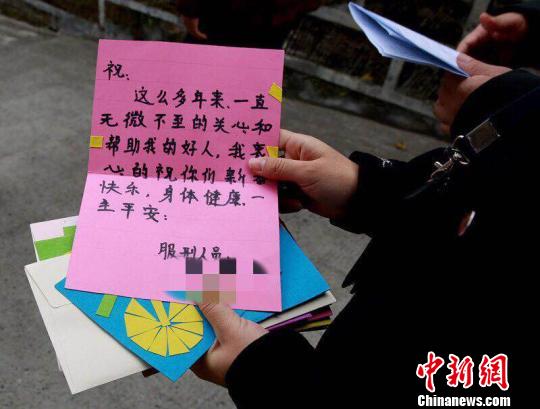 祝:
这么多年来、一直
无微不至的关心和
帮助我的好人,我衷
心的祝你们新春
快乐,身体健康,一
生平安:
服刑人员、
中新网
Chinanews.com